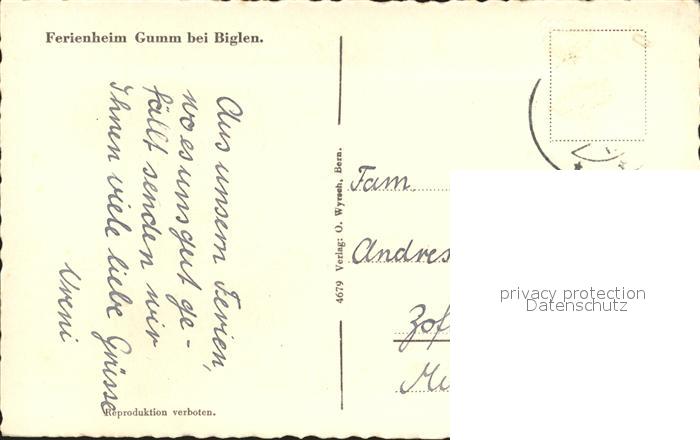 Ferienheim Gumm bei Biglen.
Aus unsern Ferien,
wo es uns gut ge-
fällt senden wir
Ihnen viele liebe Grüsse
Vreni
Reproduktion verboten.
4679 Verlag: O. Wyrsch, Bern.
Fam.
Andres
Zof
Mu
privacy protection
Datenschutz